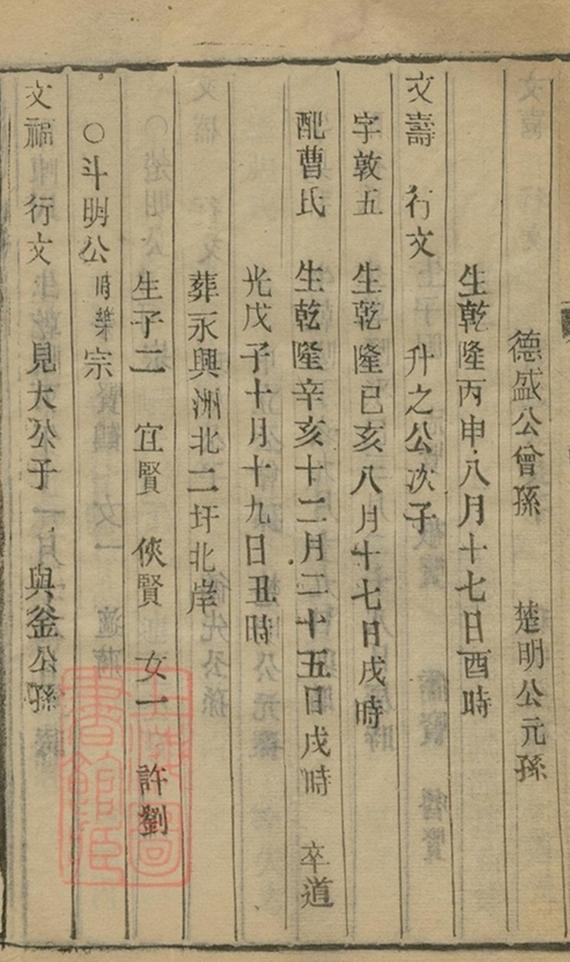 德盛公曾孫 楚明公元孫
生乾隆丙申八月十七日酉時
文壽 行文 升之公次子
字敦五 生乾隆已亥八月十七日戌時
配曹氏 生乾隆辛亥十二月二十五日戌時 卒道
光戊子十月十九日丑時
葬永興洲北二圩北岸
生子二 宜賢 俠賢 女一 許劉
○斗明公明樂宗
文福 行文 見大公子 與釜公孫